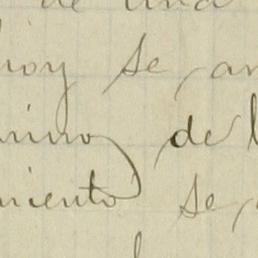 de una
hoy se, an
mino, de l
miento se,